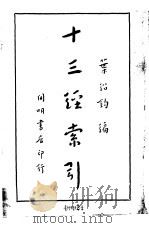 葉紹鈞編
十三經索引
開明書店印行